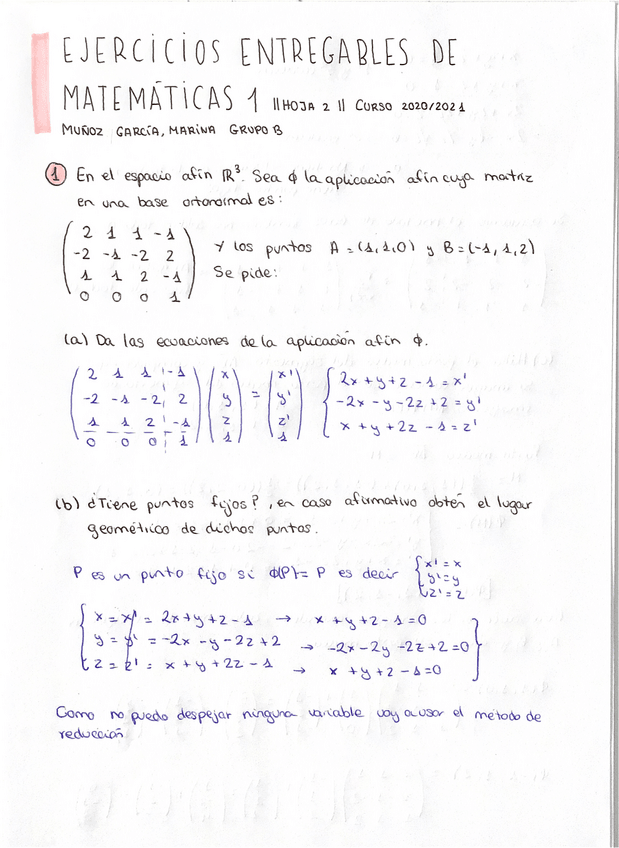 EJERCICIOS ENTREGABLES DE
MATEMÁTICAS 1 || HOJA 2 || CURSO 2020/2021
MUÑOZ GARCÍA, MARINA GRUPO B
1 En el espacio afín ℝ³. Sea ϕ la aplicación afín cuya matriz
en una base ortonormal es:
2 1 1 -1
-2 -1 -2 2
1 1 2 -1
0 0 0 1
y los puntos A = (1,1,0) y B = (-1,1,2)
Se pide:
(a) Da las ecuaciones de la aplicación afín ϕ.
2 1 1 -1 x = x' 2x + y + z - 1 = x'
-2 -1 -2 2 y y' -2x - y - 2z + 2 = y'
1 1 2 -1 z z' x + y + 2z - 1 = z'
0 0 0 1 1 1
(b) ¿Tiene puntos fijos?, en caso afirmativo obtén el lugar
geométrico de dichos puntos.
P es un punto fijo si ϕ(P) = P es decir x' = x
y' = y
z' = z
x = x' = 2x + y + z - 1 → x + y + z - 1 = 0
y = y' = -2x - y - 2z + 2 → -2x - 2y - 2z + 2 = 0
z = z' = x + y + 2z - 1 → x + y + z - 1 = 0
Como no puedo despejar ninguna variable voy a usar el método de
reducción.